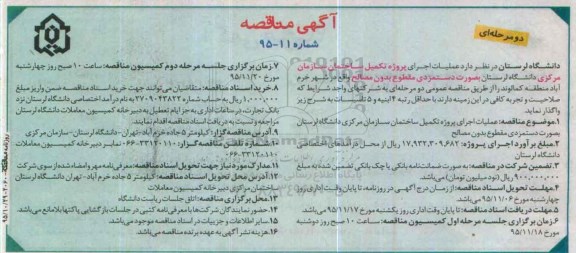 آگهی مناقصه
شماره ۱۱-۹۵
دو مرحله‌ای
دانشگاه لرستان در نظر دارد عملیات اجرای پروژه تکمیل ساختمان سازمان
مرکزی دانشگاه لرستان بصورت دستمزدی مقطوع بدون مصالح واقع در شهر خرم
آباد منطقه کمالوند را از طریق مناقصه عمومی دو مرحله‌ای به شرکتهای واجد شرایط که
صلاحیت و تجربه کافی در این زمینه دارند با حداقل رتبه ۴ ابنیه و ۵ تاسیسات به شرح زیر
واگذار نماید.
۱. موضوع مناقصه: عملیات اجرای پروژه تکمیل ساختمان سازمان مرکزی دانشگاه لرستان
بصورت دستمزدی مقطوع بدون مصالح
۲. مبلغ برآورد اجرای پروژه: ۱۷,۹۳۲,۳۰۹,۶۸۲ ریال از محل
دانشگاه لرستان
۳. تضمین شرکت در مناقصه: به صورت ضمانتنامه بانکی یا چک بانکی تضمین شده به مبلغ
۹۰۰,۰۰۰,۰۰۰ ریال (نود میلیون تومان) می‌باشد.
۴. مهلت تحویل اسناد مناقصه: از زمان درج آگهی در روزنامه، تا پایان وقت اداری روز
چهارشنبه مورخ ۹۵/۱۱/۰۶ می‌باشد.
۵. مهلت دریافت اسناد مناقصه: تا پایان وقت اداری روز یکشنبه مورخ ۹۵/۱۱/۱۷ می‌باشد.
۶. زمان برگزاری جلسه مرحله اول کمیسیون مناقصه: ساعت ۱۰ صبح روز دوشنبه
مورخ ۹۵/۱۱/۱۸
۷. زمان برگزاری جلسه مرحله دوم کمیسیون مناقصه: ساعت ۱۰ صبح روز چهارشنبه
مورخ ۹۵/۱۱/۲۰
۸. خرید اسناد مناقصه: متقاضیان می‌توانند جهت خرید اسناد مناقصه ضمن واریز مبلغ
ریال به حساب شماره به نام درآمد اختصاصی دانشگاه لرستان نزد
بانک تجارت در ساعات اداری به جز ایام تعطیل به دبیرخانه کمیسیون معاملات دانشگاه لرستان
مراجعه و نسبت به دریافت اسناد مناقصه اقدام نمایند.
۹. آدرس مناقصه گزار: کیلومتر ۵ جاده خرم آباد-تهران-دانشگاه لرستان-سازمان مرکزی
۱۰. شماره تلفن مناقصه گزار: ۰۶۶-۳۳۱۲۰۱۱۰ نمابر دبیرخانه کمیسیون معاملات
۱۱. مدارک مورد نیاز جهت تحویل اسناد مناقصه: معرفی‌نامه مهر و امضا شده از سوی شرکت
۱۲. آدرس محل تحویل اسناد مناقصه: کیلومتر ۵ جاده خرم آباد-تهران-دانشگاه لرستان-
ساختمان مرکزی دبیرخانه کمیسیون معاملات
۱۳. محل برگزاری مناقصه: اتاق جلسات ریاست دانشگاه
۱۴. حضور نمایندگان شرکت‌ها با معرفی‌نامه کتبی در جلسات بازگشایی پاکتها بلامانع می‌باشد.
۱۵. سایر اطلاعات و جزییات در اسناد مناقصه موجود می‌باشد.
۱۶. هزینه نشر آگهی به عهده برنده مناقصه می‌باشد.